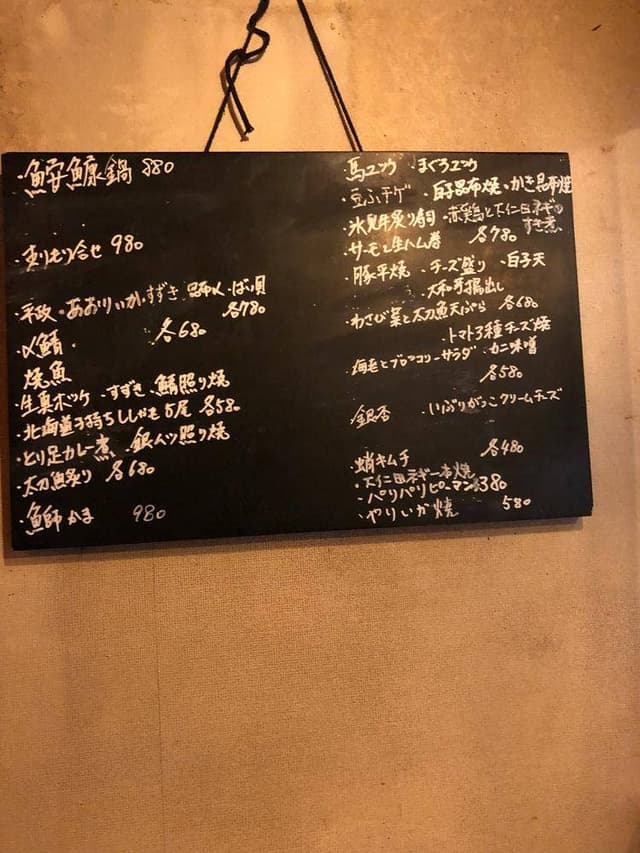 ・鮟鱇鍋 980
・刺もり合せ 980
・平政・あおりいか・すずき 昆布〆・ばい貝
各780
〆鯖・
各680
焼魚
・生真ホッケ ・すずき ・鯖照り焼
・北海道子持ちししゃも5尾 各580
・とり足カレー煮 ・銀ムツ照り焼
・太刀魚炙り 各680
・魚師かま 980
・馬ユッケ ・まぐろユッケ
・豆ふチゲ ・白子昆布焼・かき昆布焼
・氷見牛炙り寿司 ・赤鶏と下仁田ネギの
すき煮
・サーモン生ハム巻 各780
・豚平焼 ・チーズ盛り ・白子天
・大和芋揚出し
・わさび菜と太刀魚天ぷら 各680
・トマト3種チーズ焼
・海老とブロッコリーサラダ ・カニ味噌
各580
・銀杏 ・いぶりがっこクリームチーズ
各480
・蛸キムチ
・下仁田ネギ一本焼
・パリパリピーマン 各380
・やりいか焼 580